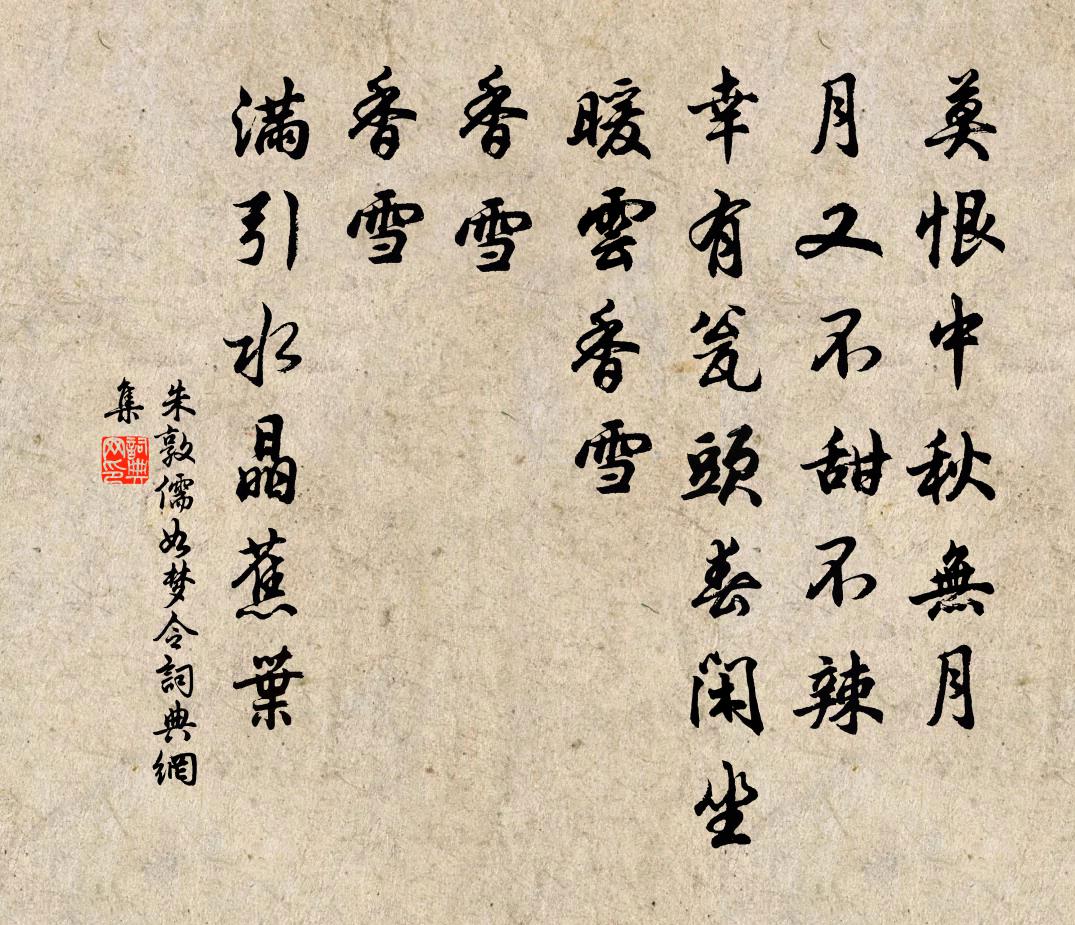 莫恨中秋無月
月又不甜不辣
幸有瓮頭春閑坐
暖雲香雪
香雪
香雪
滿引水晶蕉葉
朱敦儒如梦令詞典網
集
詞典
网印